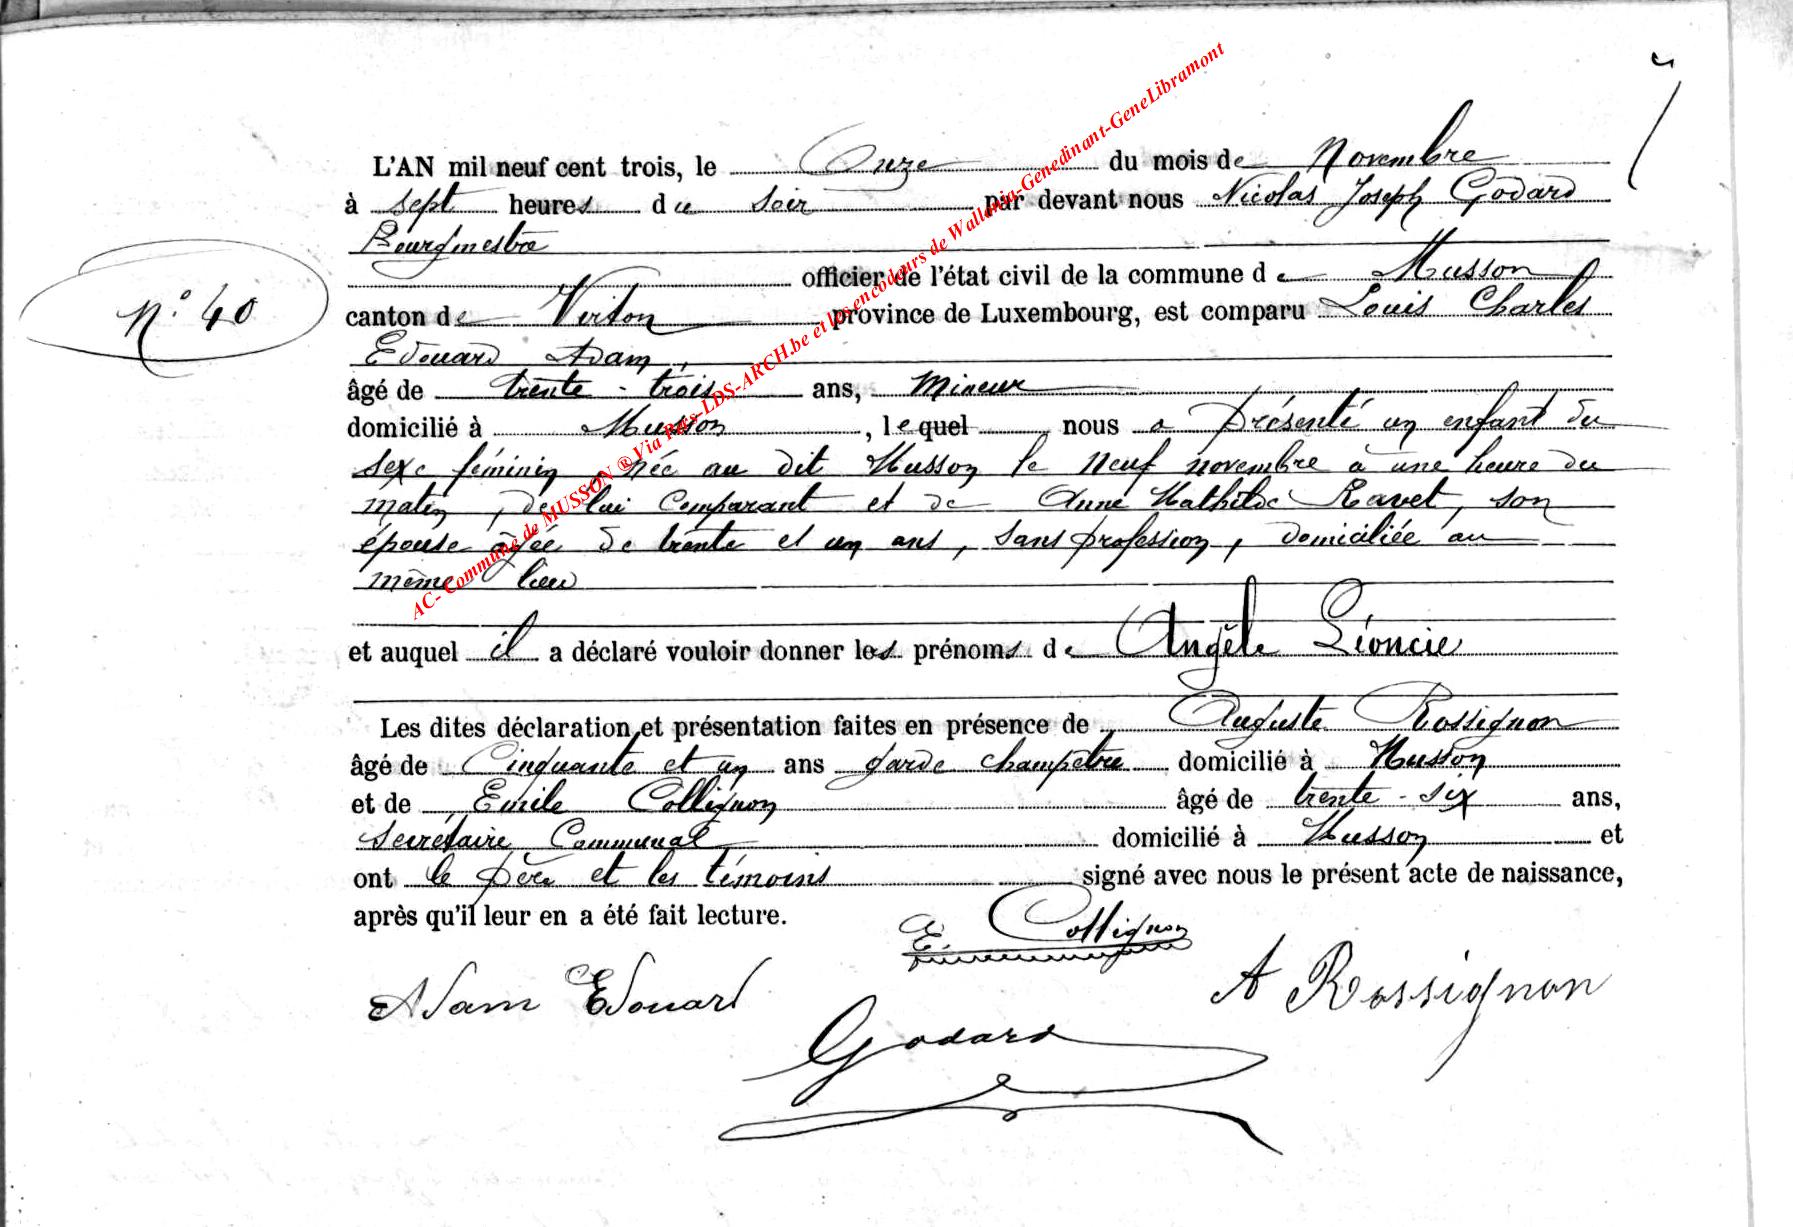 L'AN mil neuf cent trois, le Onze du mois de Novembre
à sept heures du soir par devant nous Nicolas Joseph Godard
Bourgmestre
officier de l'état civil de la commune de Musson
N° 40
canton de Virton province de Luxembourg, est comparu Louis Charles
Edouard Adam,
âgé de trente-trois ans, Mineur
domicilié à Musson, lequel nous a présenté un enfant du
sexe féminin, née au dit Musson le neuf novembre à une heure du
matin, de lui comparant et de Anne Mathilde Ravet, son
épouse âgée de trente et un ans, sans profession, domiciliée au
même lieu
et auquel il a déclaré vouloir donner les prénoms de Angèle Léoncie
Les dites déclaration et présentation faites en présence de Auguste Rossignon
âgé de Cinquante et un ans garde champêtre domicilié à Musson
et de Emile Collignon âgé de trente-six ans,
secrétaire Communal domicilié à Musson et
ont le père et les témoins signé avec nous le présent acte de naissance,
après qu'il leur en a été fait lecture.
E. Collignon
Adam Edouard
A Rossignon
Godard
AC- Commune de MUSSON ® Via Pres-LDS-ARCH.be et les encodeurs de Wallonia-Genedinant-GeneLibramont